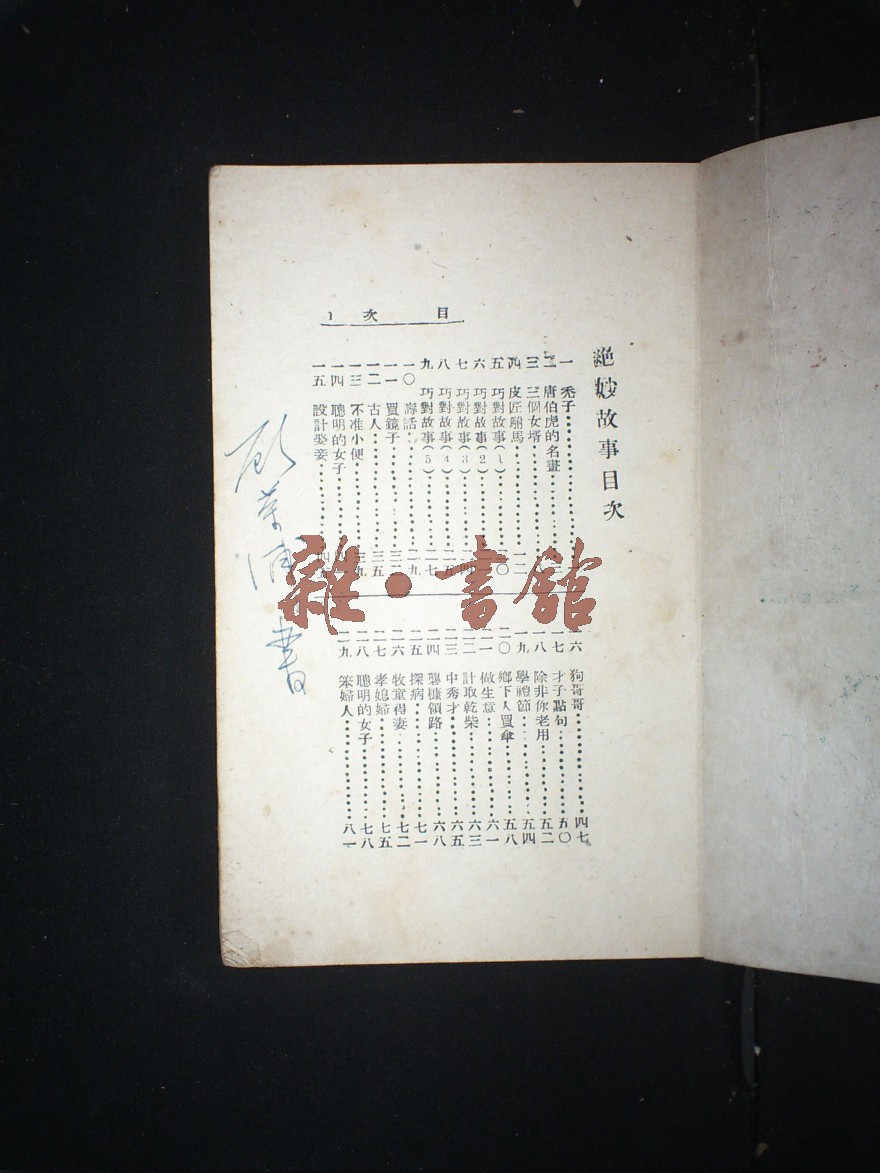 絕妙故事目次
目次 1
一 禿子
二 唐伯虎的名畫
三 三個女壻
四 皮匠駙馬 一二
五 巧對故事(1)
六 巧對故事(2)
七 巧對故事(3)
八 巧對故事(4)
九 巧對故事(5) 二七
一〇 壽話 二九
一一 買鏡子 三二
一二 古人 三五
一三 不准小便 三九
一四 聰明的女子
一五 設計娶妾
一六 狗哥哥 四七
一七 才子點句 五〇
一八 除非你老用 五二
一九 學禮節 五四
二〇 鄉下人買傘 五八
二一 做生意 六一
二二 計取乾柴 六三
二三 中秀才 六五
二四 礱糠領路 六八
二五 探病 七一
二六 牧童得妻 七二
二七 孝媳婦 七五
二八 聰明的女子 七八
二九 笨婦人 八一
雜·書館
書